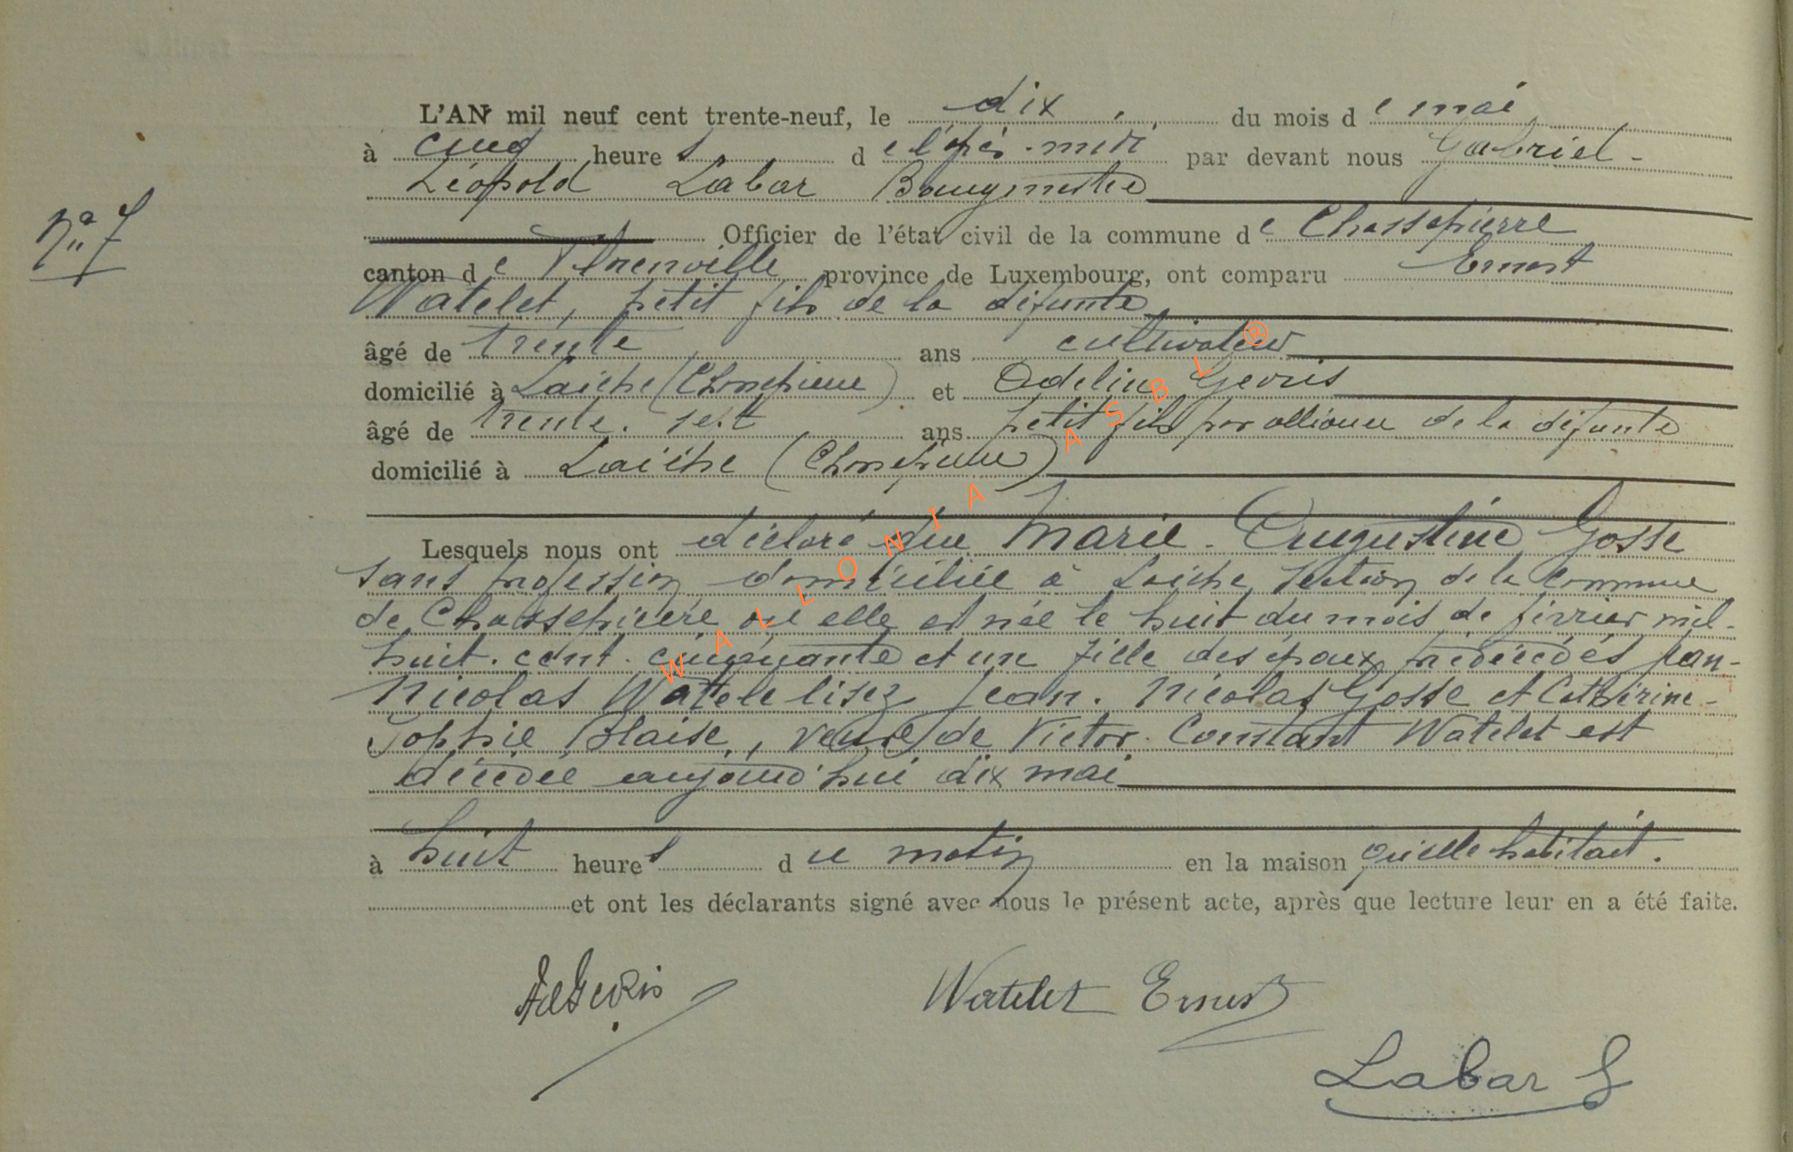 L'AN mil neuf cent trente-neuf, le dix du mois de mai
à cinq heures de l'après-midi par devant nous Gabriel-
Léopold Labar Bourgmestre
N° 7
Officier de l'état civil de la commune de Chassepierre
canton de Florenville province de Luxembourg, ont comparu Ernest
Watelet, petit fils de la défunte
âgé de trente ans cultivateur
domicilié à Laiche (Chassepierre) et Adelin Gevris
âgé de trente-sept ans petit fils par alliance de la défunte
domicilié à Laiche (Chassepierre)
Lesquels nous ont déclaré que Marie-Augustine Gosse
sans profession domiciliée à Laiche section de la commune
de Chassepierre où elle est née le huit du mois de février mil-
huit-cent-cinquante et un fille des époux prédécédés Jean-
Nicolas Watele lisez Jean-Nicolas Gosse et Cathérine-
Sophie Blaise, veuve de Victor-Constant Watelet est
décédée aujourd'hui dix mai
à huit heures du matin en la maison qu'elle habitait.
et ont les déclarants signé avec nous le présent acte, après que lecture leur en a été faite.
AdGevris
Watelet Ernest
Labar G
WALLONIA ASBL ®